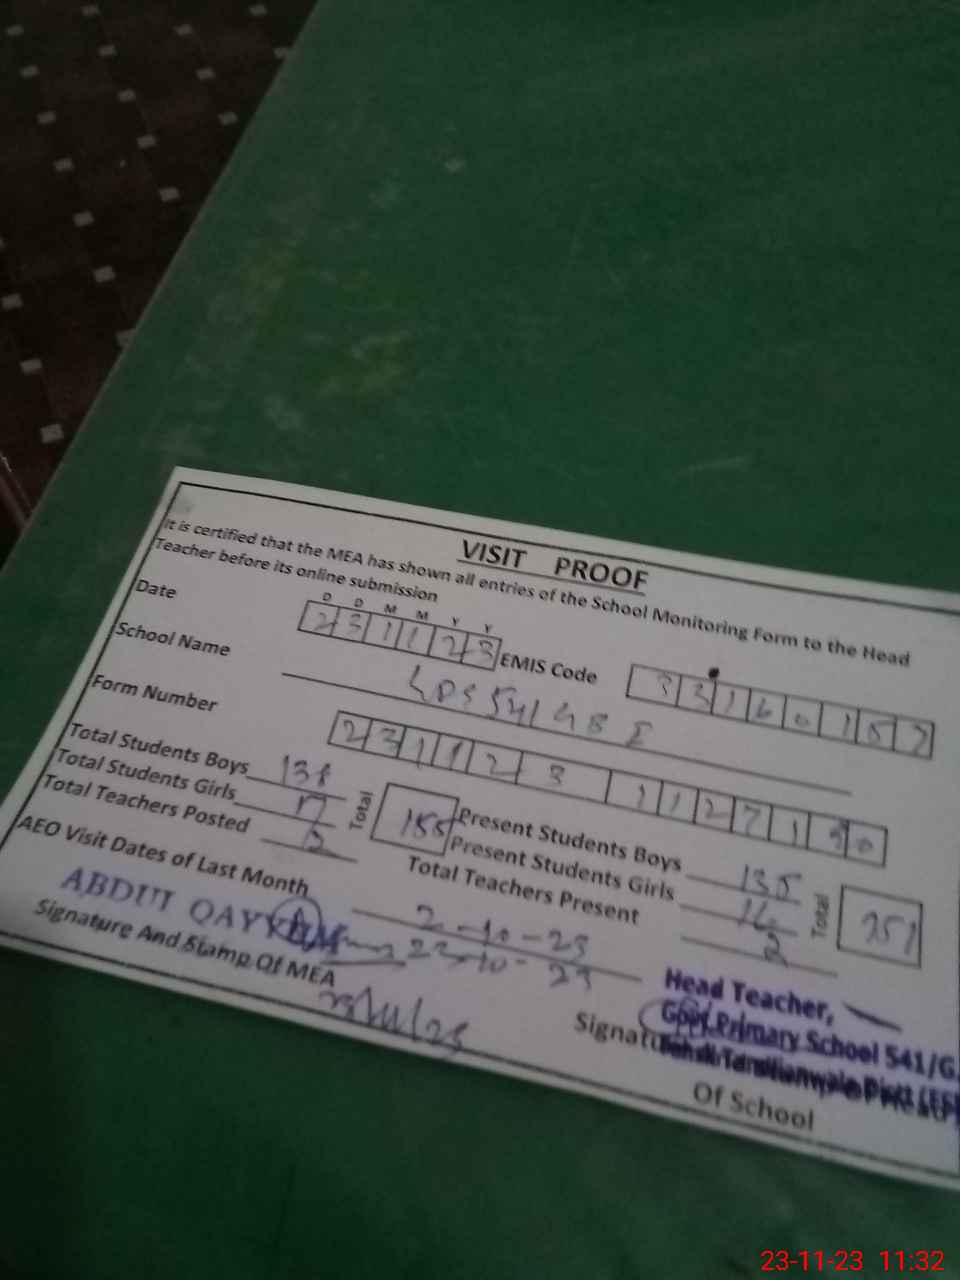 VISIT PROOF
It is certified that the MEA has shown all entries of the School Monitoring Form to the Head
Teacher before its online submission
D D M M Y Y
Date 2 3 1 1 2 3 EMIS Code 3 3 1 6 0 1 5 7
School Name 541 GB
Form Number 2 3 1 1 2 3 1 1 2 7 1 9 0
Total Students Boys 138
Total Students Girls 17
Total 155
Total Teachers Posted
Present Students Boys 135
Present Students Girls 16
Total 151
Total Teachers Present 2
AEO Visit Dates of Last Month 2-10-23
23-10-23
ABDUL QAYYUM
Signature And Stamp Of MEA
23/11/23
Head Teacher,
Govt. Primary School 541/G.
Tandlianwala Distt
Of School
23-11-23 11:32